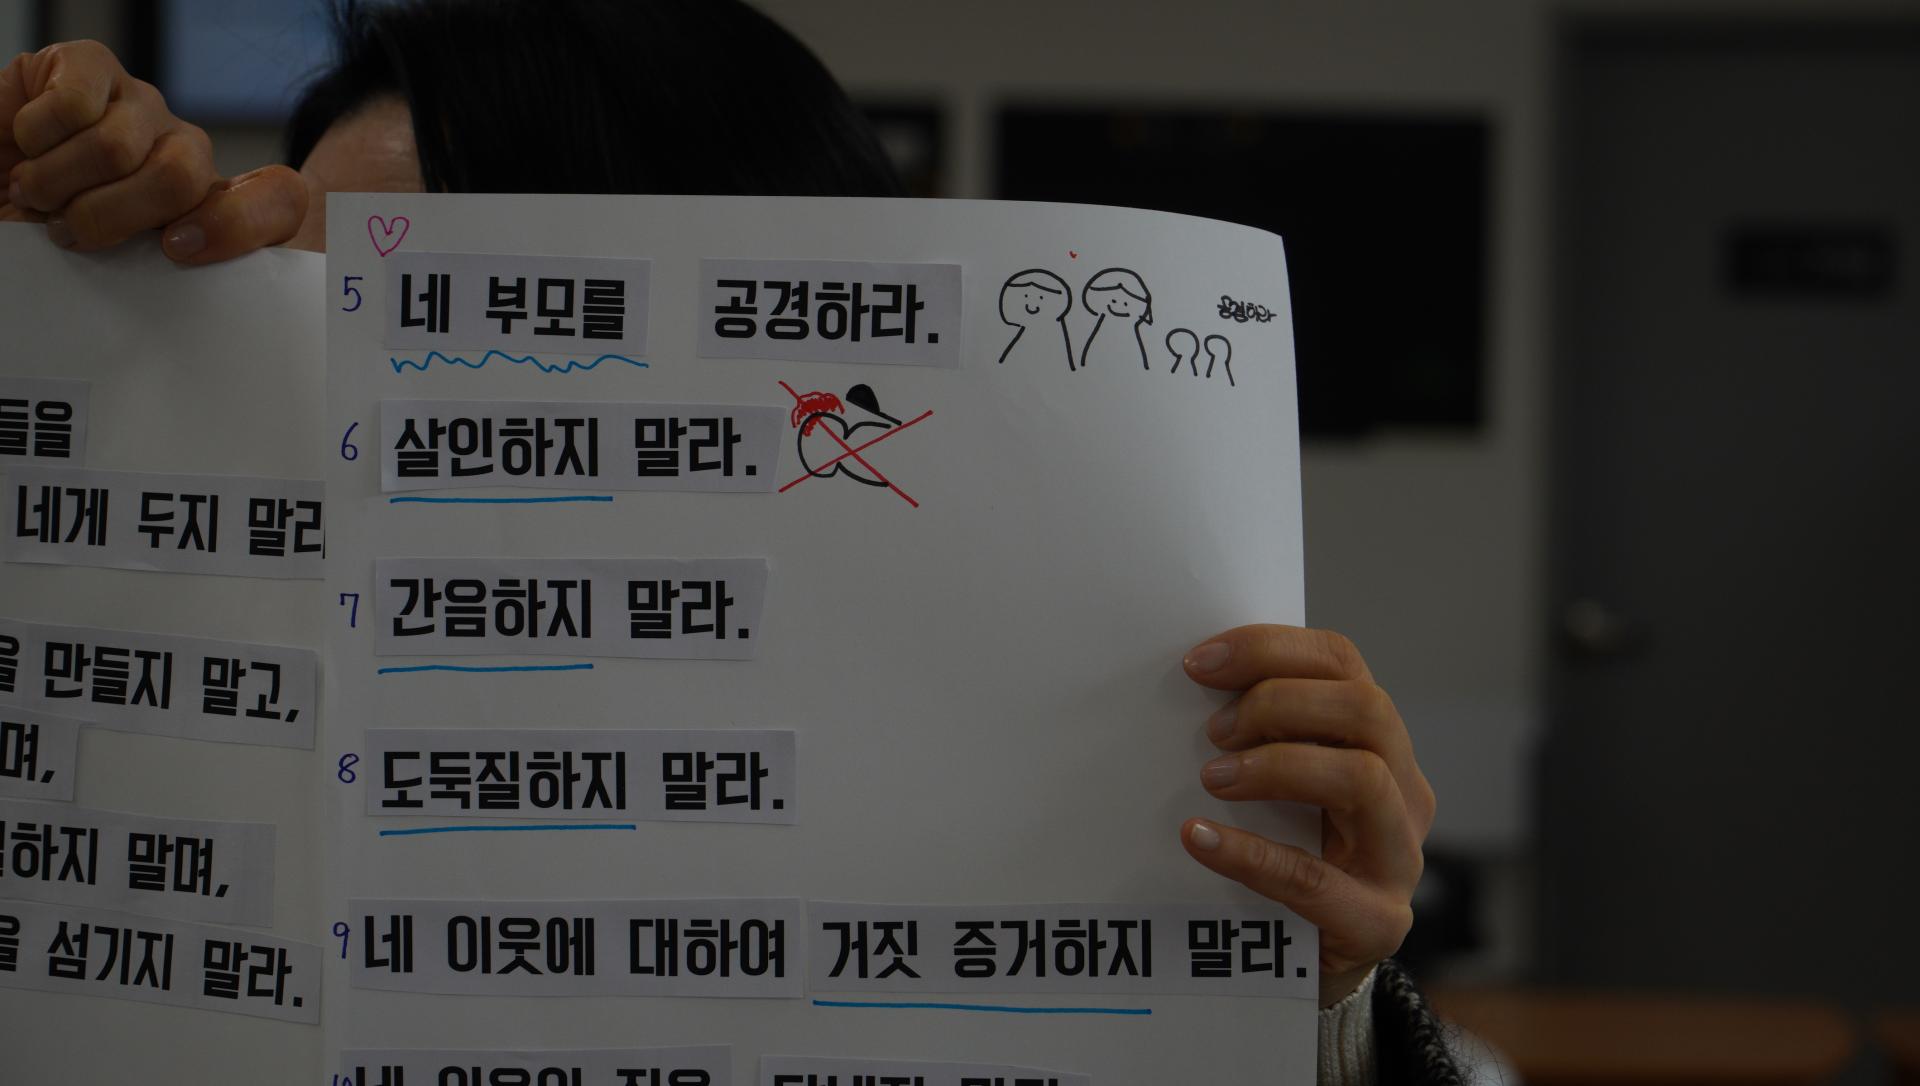 들을
네게 두지 말라
을 만들지 말고,
며,
하지 말며,
을 섬기지 말라.
5 네 부모를 공경하라.
공경하라
6 살인하지 말라.
7 간음하지 말라.
8 도둑질하지 말라.
9 네 이웃에 대하여 거짓 증거하지 말라.
10 네 이웃의 집을